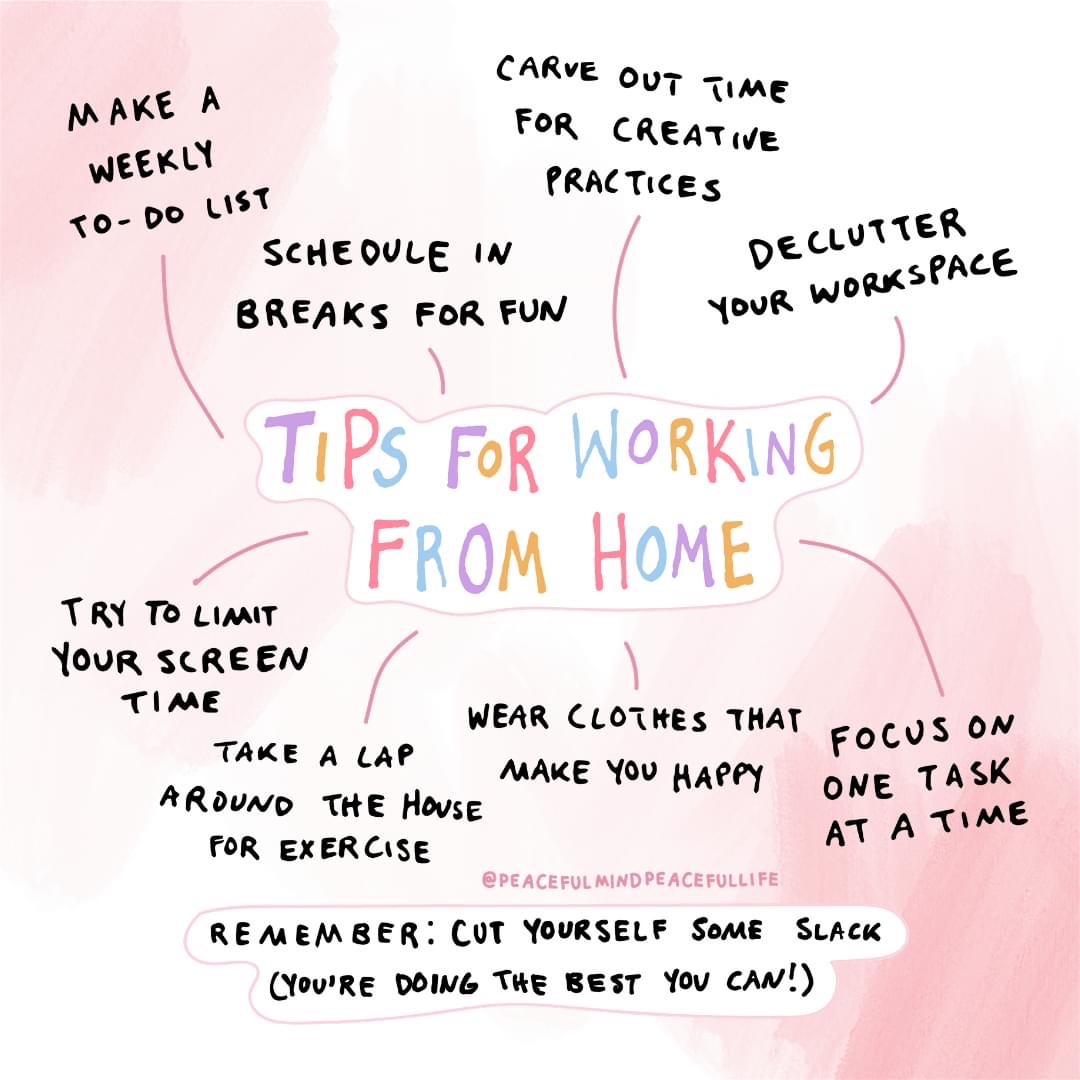 MAKE A
WEEKLY
TO-DO LIST
SCHEDULE IN
BREAKS FOR FUN
CARVE OUT TIME
FOR CREATIVE
PRACTICES
DECLUTTER
YOUR WORKSPACE
TIPS FOR WORKING
FROM HOME
TRY TO LIMIT
YOUR SCREEN
TIME
TAKE A LAP
AROUND THE HOUSE
FOR EXERCISE
WEAR CLOTHES THAT
MAKE YOU HAPPY
FOCUS ON
ONE TASK
AT A TIME
@PEACEFULMINDPEACEFULLIFE
REMEMBER: CUT YOURSELF SOME SLACK
(YOU'RE DOING THE BEST YOU CAN!)